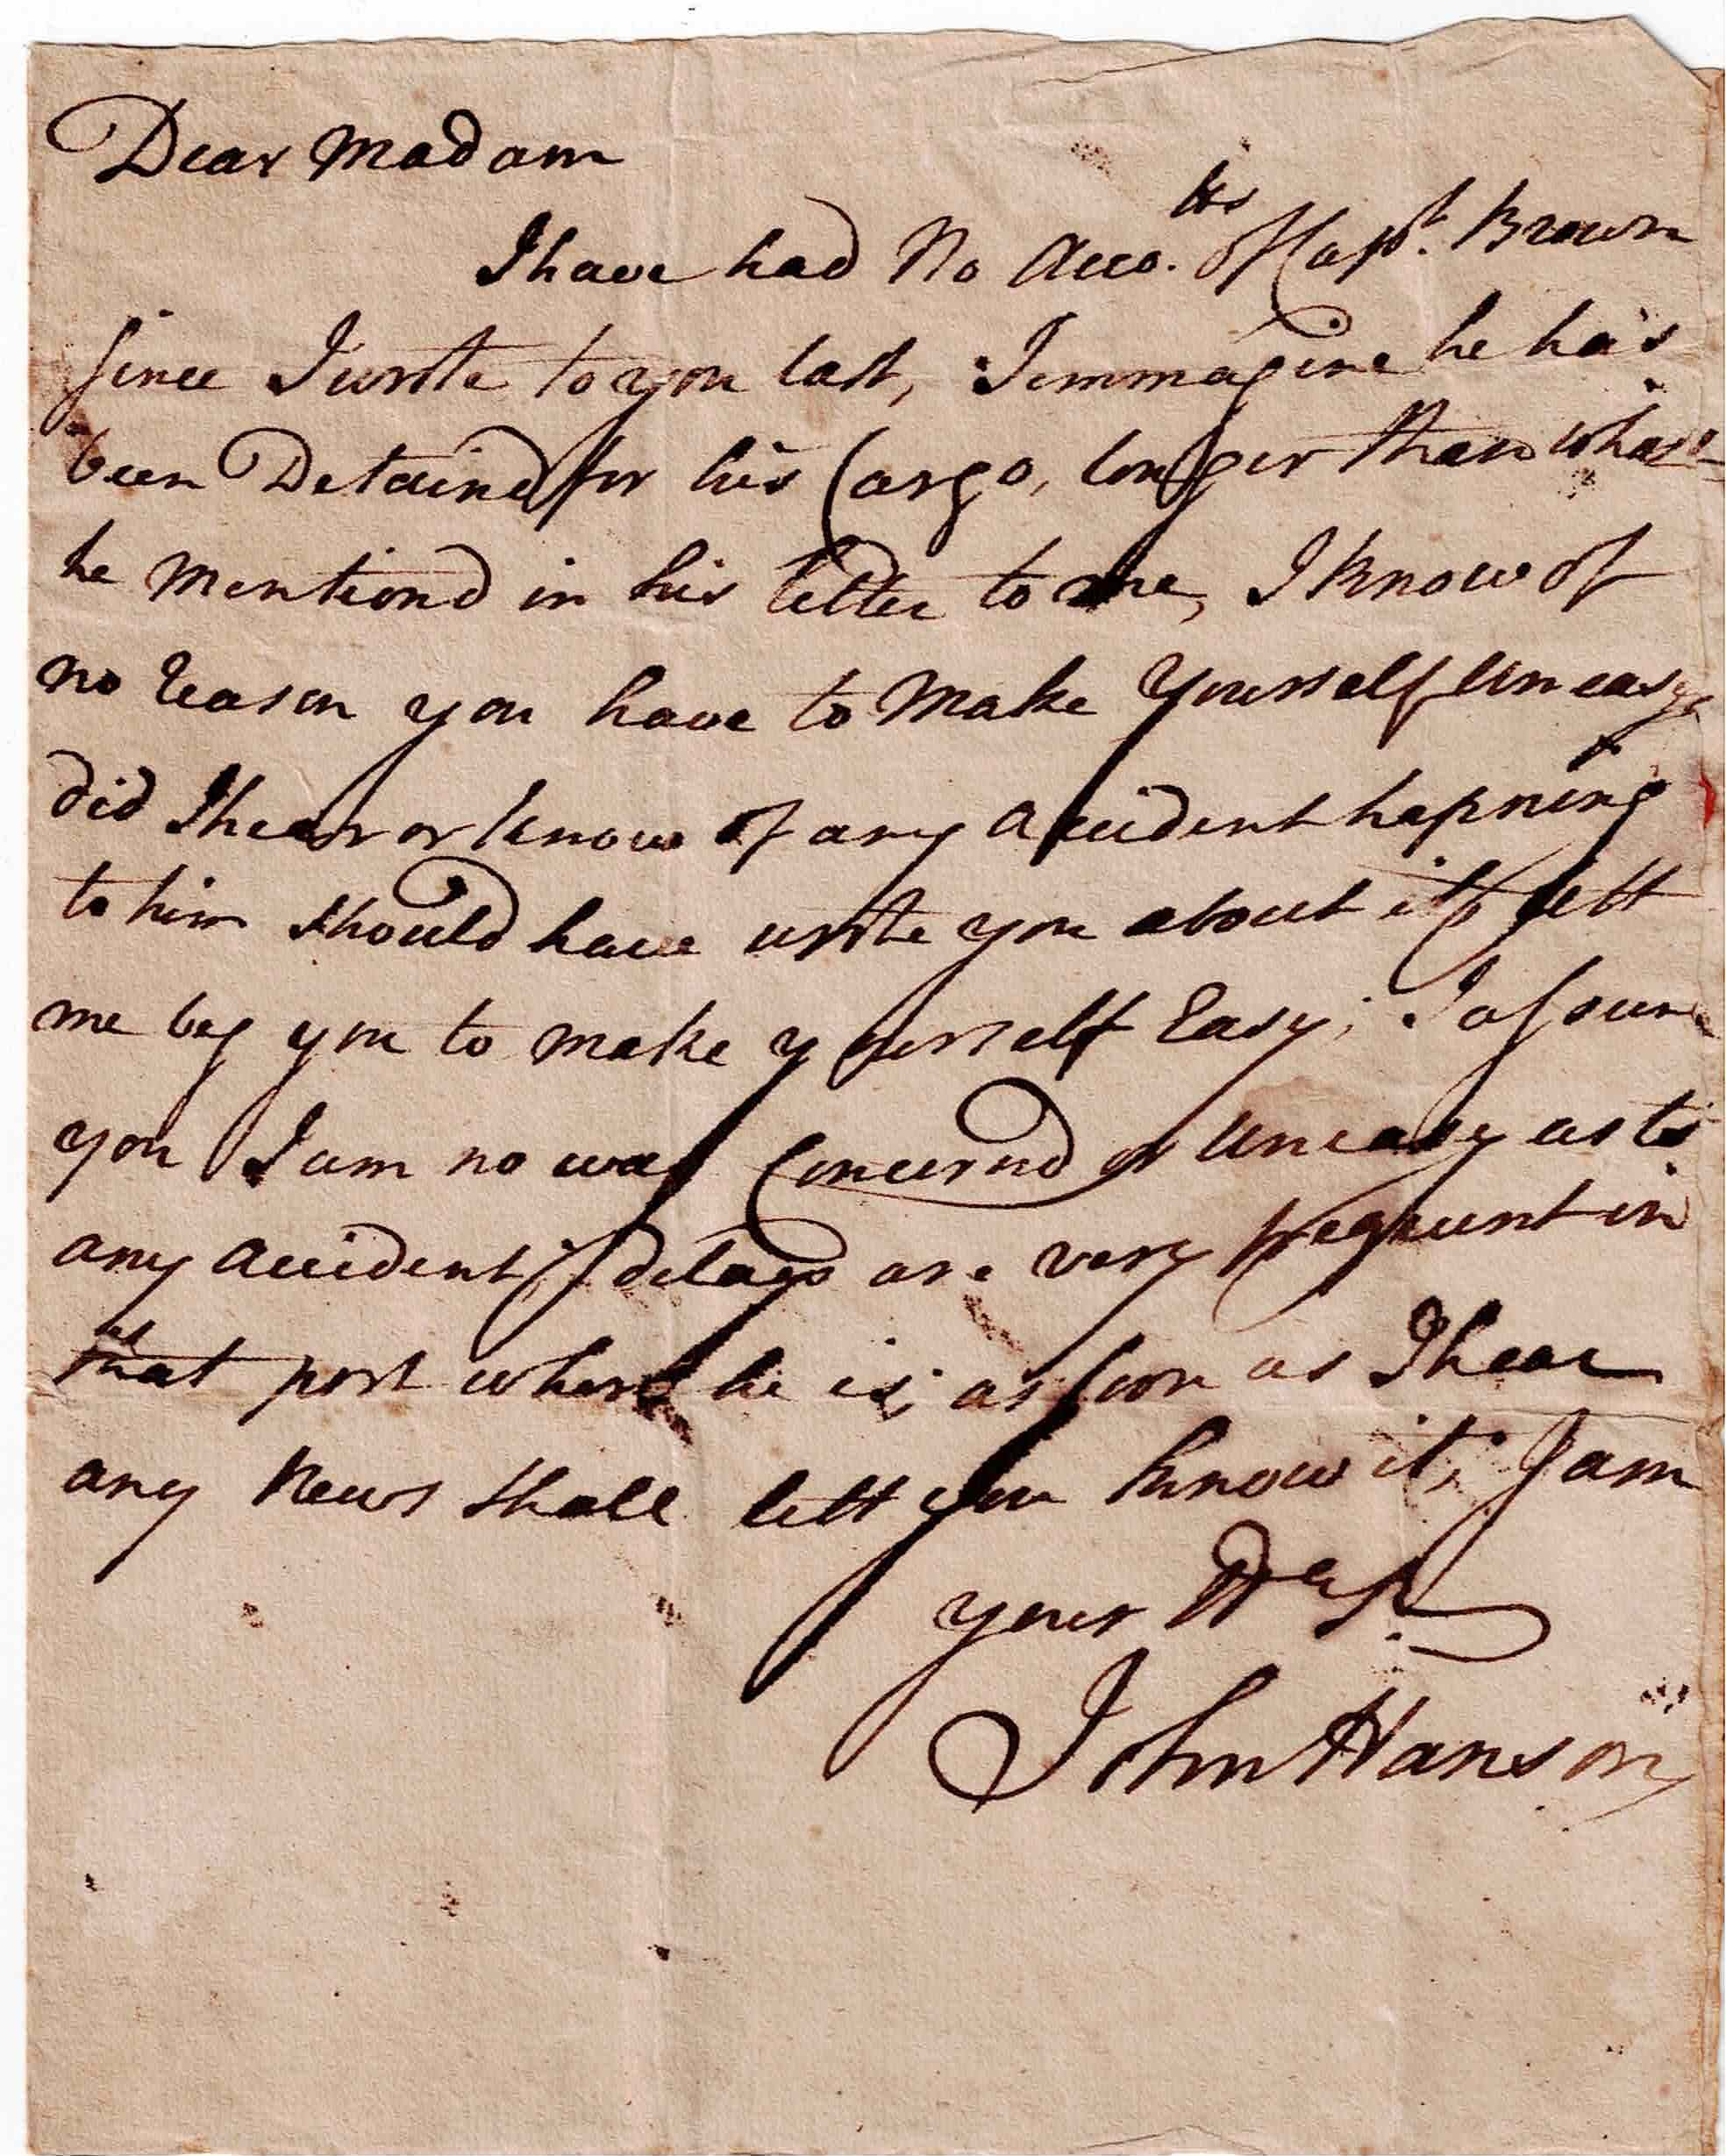 Dear Madam
I have had No Acco.tts of Capt. Brown
since I wrote to you last, I immagine he has
been Detaind for his Cargo, longer than what
he Mentiond in his letter to me, I know of
no reason you have to Make Yourself Uneasy
did I hear or know of any Accident hapning
to him should have wrote you about it, lett
me beg you to make yourself Easy; I assure
you I am no way Concernd or Uneasy as to
any Accident, delays are very frequent in
that port where he is; as soon as I hear
any News shall lett you know it, I am
your
John Hanson